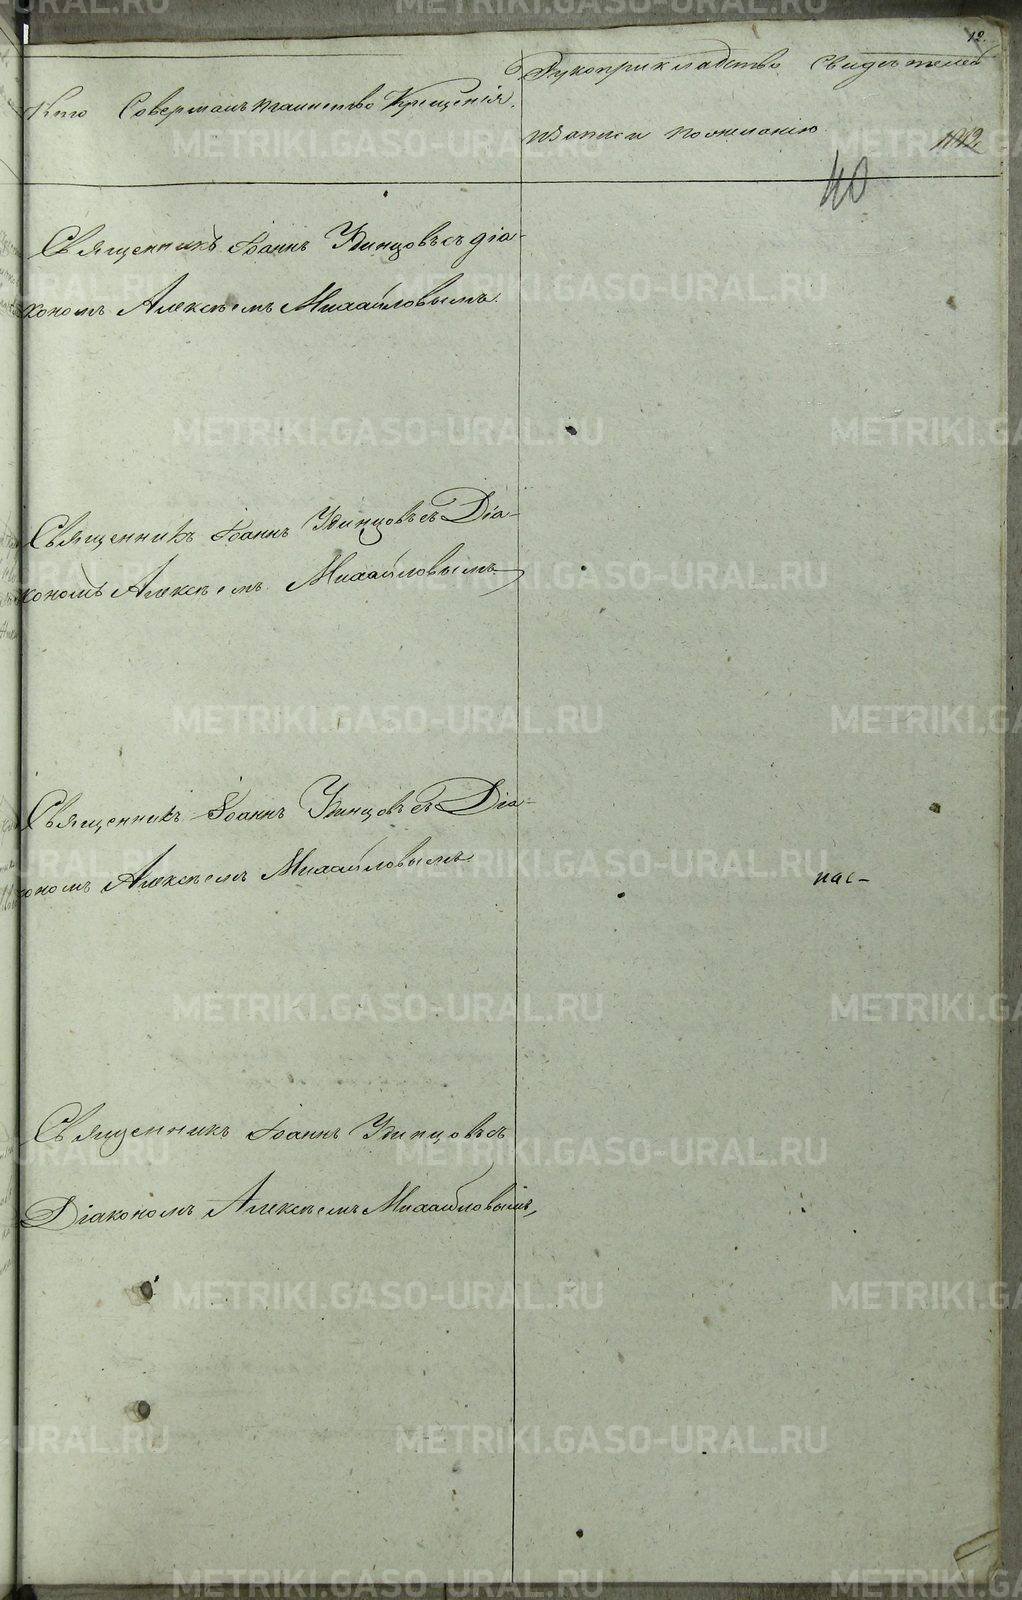 12.
Кто Совершалъ таинство Крещенія.
Рукоприкладство Свидѣтелей
записи по желанію
40
Священникъ Іоаннъ Удинцовъ съ діа-
кономъ Алексѣемъ Михайловымъ.
Священникъ Іоаннъ Удинцовъ съ Діа-
кономъ Алексѣемъ Михайловымъ
Священникъ Іоаннъ Удинцовъ съ Діа-
кономъ Алексѣемъ Михайловымъ
нас-
Священникъ Іоаннъ Удинцовъ съ
Діакономъ Алексѣемъ Михайловымъ,
METRIKI.GASO-URAL.RU